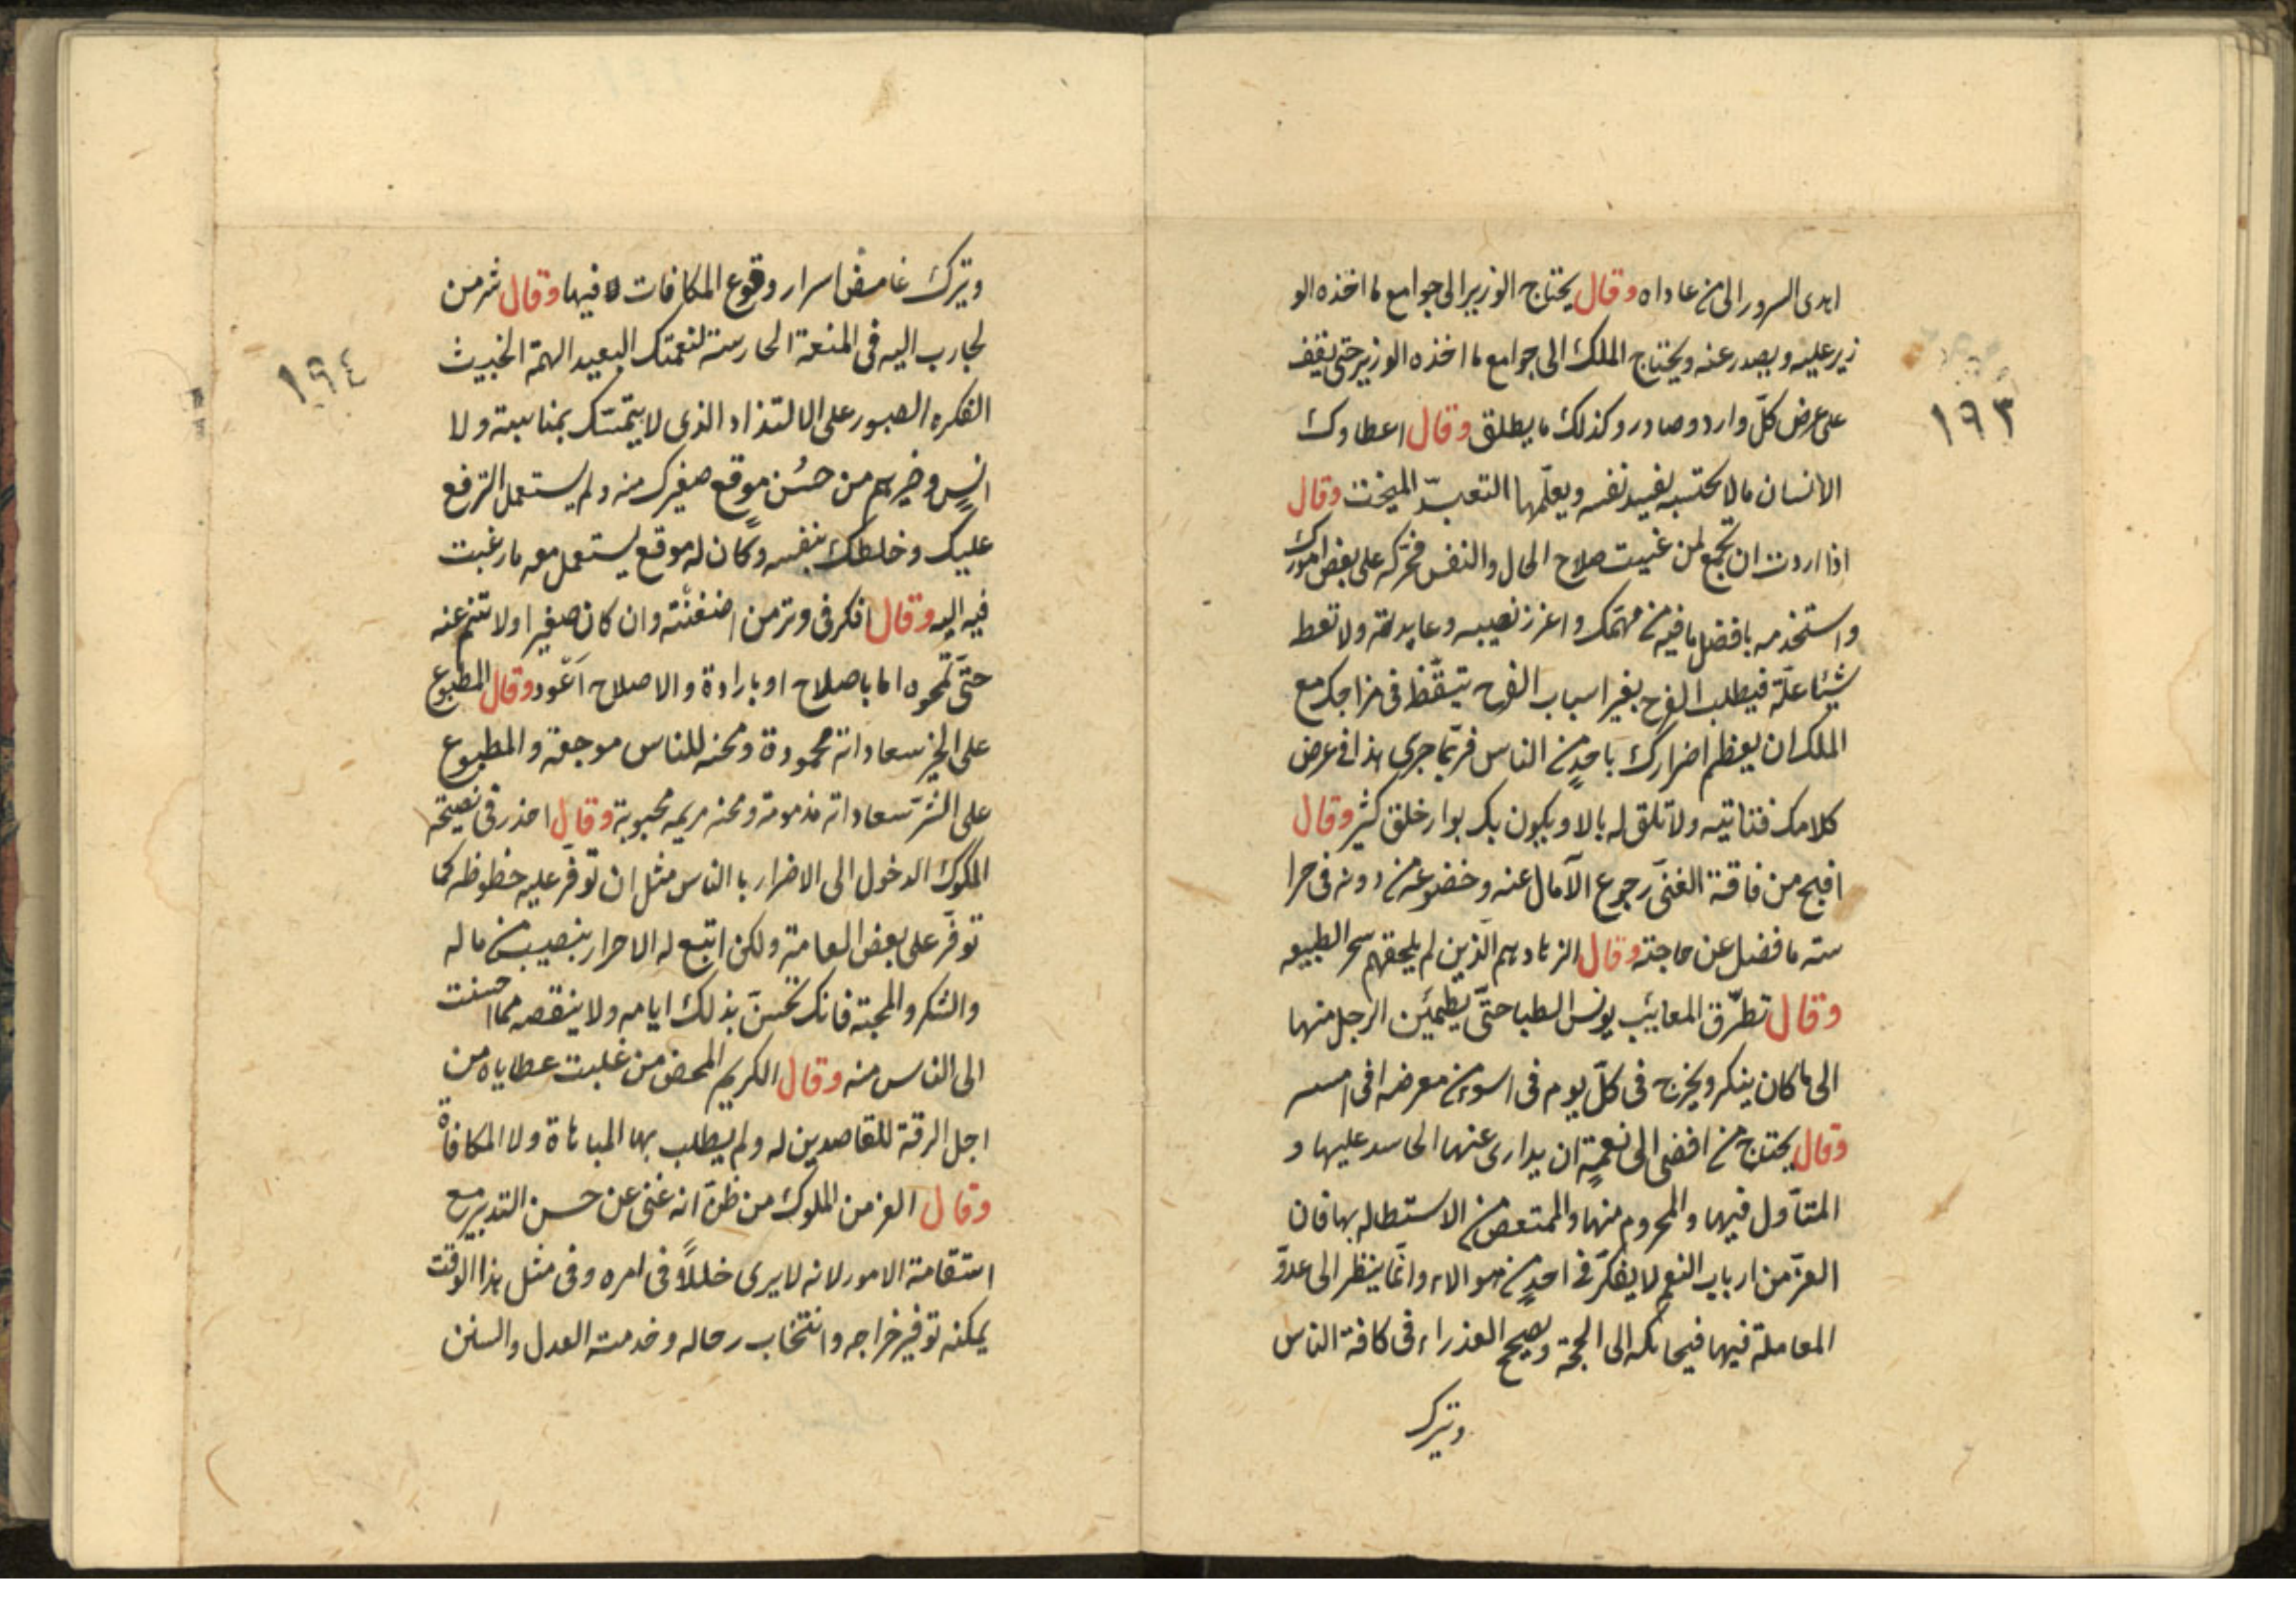 اهدى السرور الى من عاداه وقال يحتاج الوزير الى جوامع ما اخذه الو
زير عليه ويصدر عنه ويحتاج الملك الى جوامع ما اخذه الوزير حتى يقف
على عرض كلّ وارد وصادر وكذلك ما يطلق وقال اعطاوك
الانسان مالا يحتسبه يفسد نفسه ويعلّمها التعبّد للبخت وقال
اذا اردت ان تجمع لمن عنيت صلاح الحال والنفس فحرّكه على بعض امورك
واستخدمه بافضل ما فيه من مهمّك واغزز نصيبه وعايدته ولا تعط
شيئا علّة فيطلب الفرح بغير اسباب الفرح تيقّظ فى مزاجك مع
الملك ان يعظم اضرارك باحدٍ من الناس فربّما جرى هذا فى عرض
كلامك فتناتيه ولا تلق له بالا ويكون بك بوار خلق كثير وقال
اقبح من فاقة الغنىّ رجوع الآمال عنه وخضوعه من دونه فى حرا
سته ما فضل عن حاجته وقال الزهاد هم الّذين لم يلحقهم سحر الطبيعه
وقال تطرّق المعائب يونس الطبا حتّى يطمئن الرجل منها
الى ما كان ينكر ويخرج فى كلّ يوم فى اسوء من معرضه فى امسه
وقال يحتاج من افضى الى نعمةٍ ان يدارى عنها الحاسد عليها و
المتأوّل فيها والمحروم منها والممتعض من الاستطاله بها فان
الغرّ من ارباب النعم لا يفكّر فى احدٍ من هوالاء وانّما ينظر الى عدوّ
المعاملة فيها فيحاكه الى الحجة ويصحح العذراء فى كافة الناس
ويترك
١٩٣
ويترك غامض اسرار وقوع المكافات فيها وقال شر من
تجارب اليه فى المنعة الحارسة لنعمتك البعيد الهمة الخبيث
الفكره الصبور على الالتذاذ الذى لا يتمسّك بمناسبة ولا
انسٍ وخيرهم من حسُن موقع صغيرك منه ولم يستعمل الترفع
عليك وخلطك بنفسه وكان له موقع يستعمل معه ما رغبت
فيه اليه وقال افكر فى وتر من اضغنْته وان كان صغيرا ولا تنم عنه
حتّى تمحوه اما باصلاح او بارادة والاصلاح اَعْود وقال المطبوع
على الخير سعاداته محمودة ومحنه للناس موجعة والمطبوع
على الشّر سعاداته مذمومة ومحنه مريمه محبوبة وقال احذر فى نصيحة
الملوك الدخول الى الاضرار بالناس مثل ان توفّر عليه حظوظه كما
توفّر على بعض العامة ولكن اتبع له الاحرار بنصيب من ماله
والشكر والمحبة فانك تحسّن بذلك ايامه ولا ينقصه مما احسنت
الى الناس منه وقال الكريم المحض من غلبت عطاياه من
اجل الرقة للقاصدين له ولم يطلب بها المباهاة ولا المكافاة
وقال الغر من الملوك من ظنّ انه غنى عن حسن التدبير مع
استقامة الامور لانه لا يرى خللاً فى امره وفى مثل هذا الوقت
يمكنه توفير خراجه وانتخاب رجاله وخدمة العدل والسنن
١٩٤